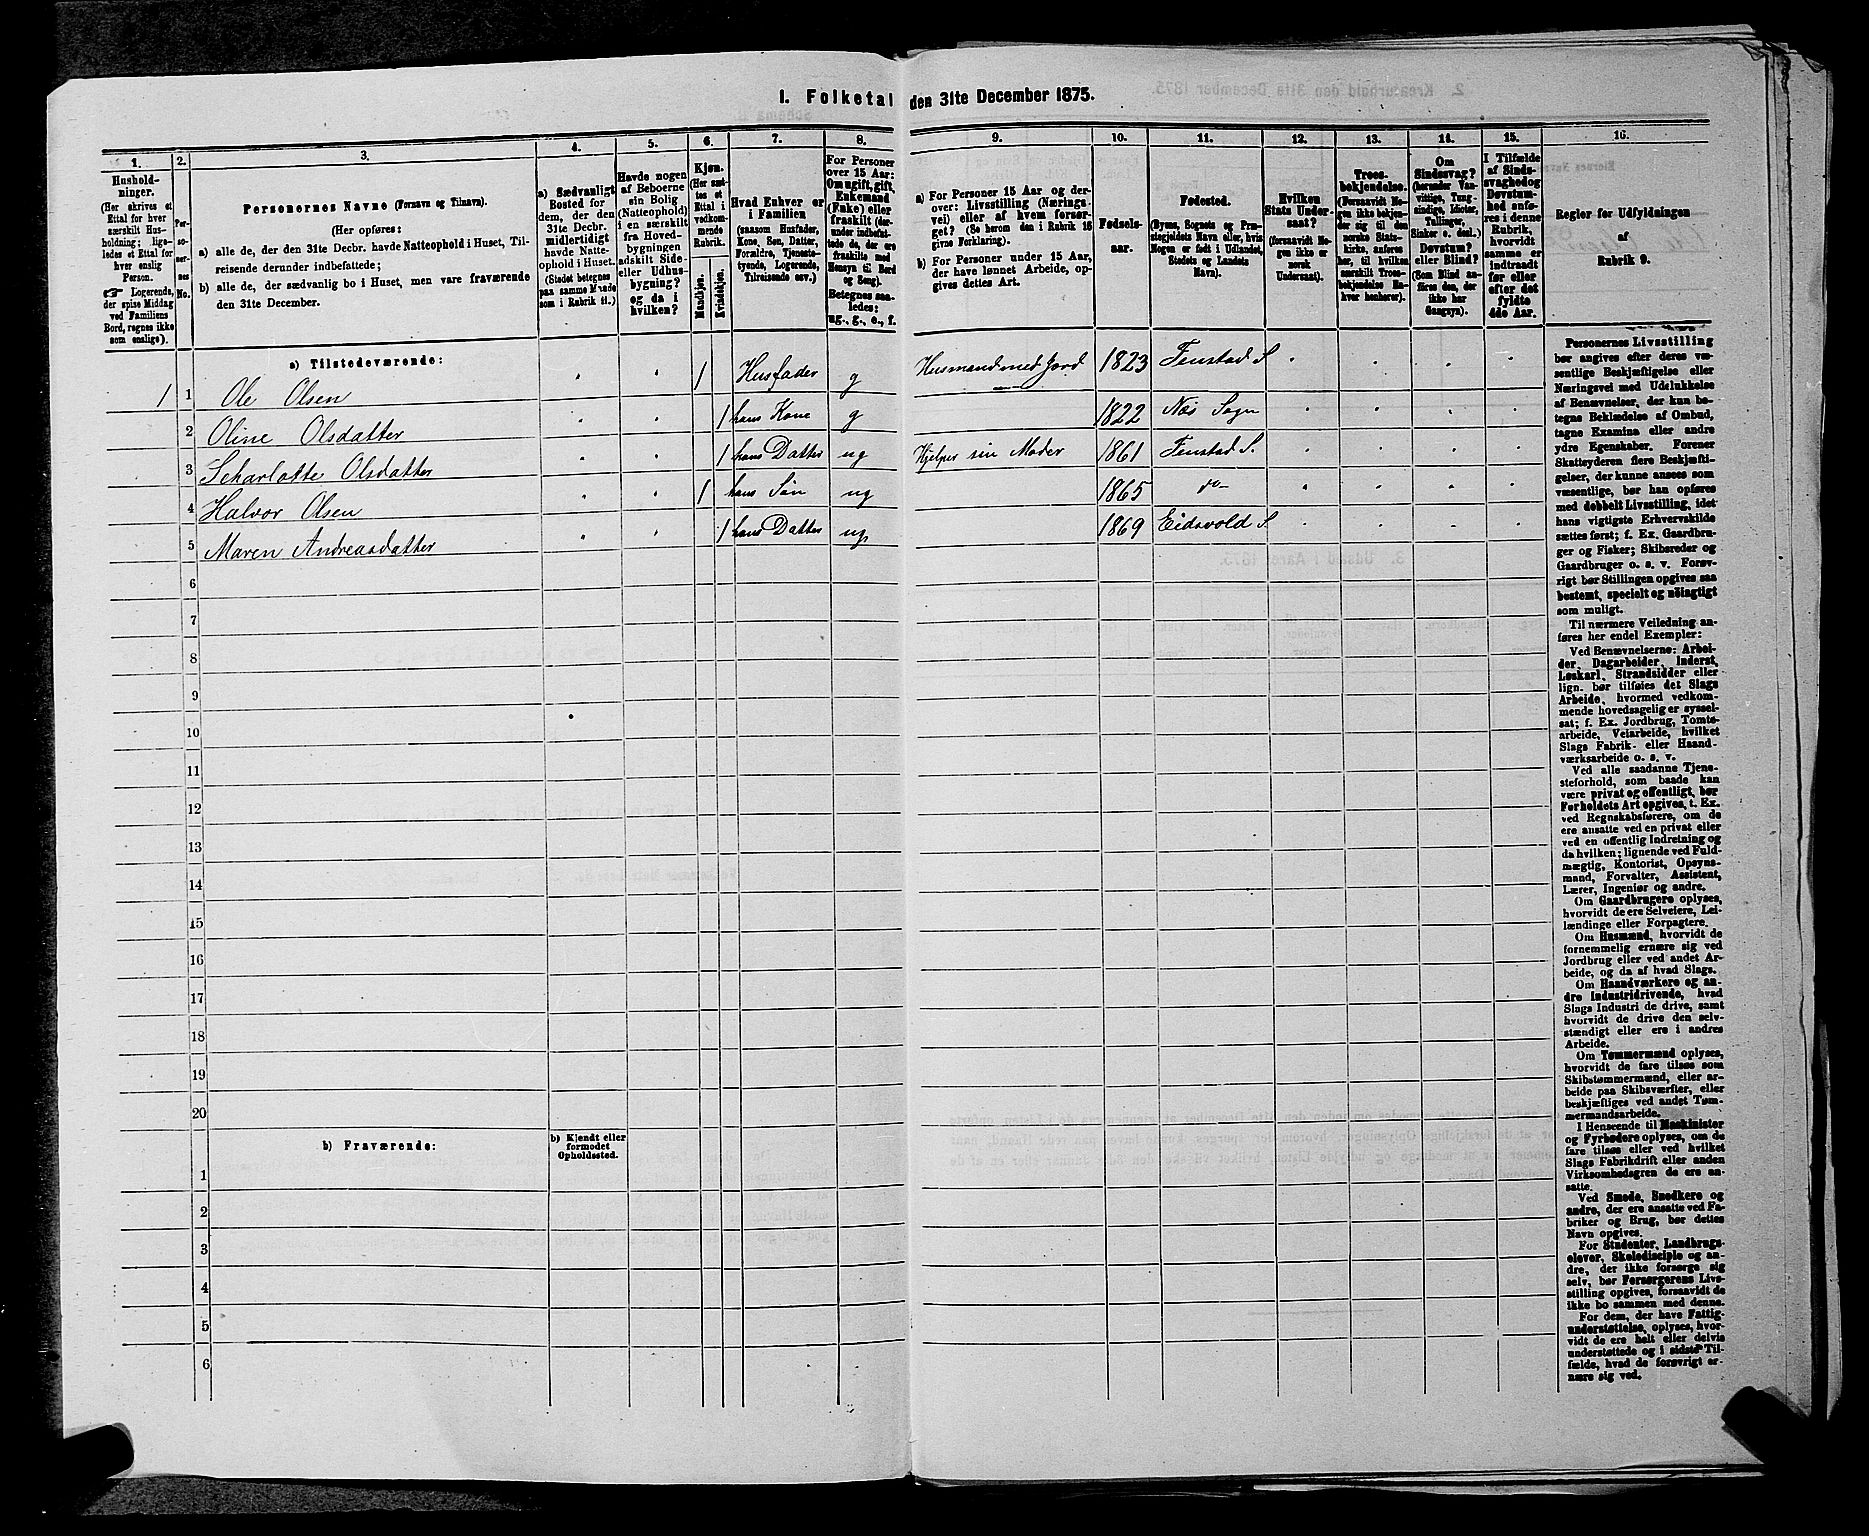 1. Folketal den 31te December 1875.
1.
Hushold-
ninger.
(Her skrives et
Ettal for hver
særskilt Hus-
holdning; lige-
ledes et Ettal for
hver enslig
Person.
☞ Logerende,
der spise Middag
ved Familiens
Bord, regnes ikke
som enslige).
2.
Per-
so-
ner-
nes
No.
3.
Personernes Navne (Fornavn og Tilnavn).
(Her opføres:
a) alle de, der den 31te Decbr. havde Natteophold i Huset, Til-
reisende derunder indbefattede;
b) alle de, der sædvanlig bo i Huset, men vare fraværende
den 31te December.
4.
a) Sædvanligt
Bosted for
dem, der den
31te Decbr.
midlertidigt
havde Natte-
ophold i Huset.
(Stedet betegnes
paa samme Maade
som i Rubrik 11.)
5.
Havde nogen
af Beboerne
ein Bolig
(Natteophold)
i en særskilt
fra Hoved-
bygningen
adskilt Side-
eller Udhus-
bygning?
og da i
hvilken?
6.
Kjøn.
(Her sæt-
tes et
Ettal i
vedkom-
mende
Rubrik.
Mandkjøn.
Kvindekjøn.
7.
Hvad Enhver er
i Familien
(saasom Husfader,
Kone, Søn, Datter,
Forældre, Tjenest-
tyende, Logerende,
Tilreisende osv.)
8.
For Personer
over 15 Aar:
Om ugift, gift,
Enkemand
(Enke) eller
fraskilt (der-
under indbefat-
tede de, der ere
fraskilte med
Hensyn til Bord
og Seng).
Betegnes saa-
ledes:
ug., g., e., f.
9.
a) For Personer 15 Aar og der-
over: Livsstilling (Nærings-
vei) eller af hvem forsør-
get? (Se herom den i Rubrik 16
givne Forklaring).
b) For Personer under 15 Aar,
der have lønnet Arbeide, op-
gives dettes Art.
10.
Fødsels-
aar.
11.
Fødested.
(Byens, Sognets og Præ-
stegjeldets Navn eller, hvis
Nogen er født i Udlandet,
Stedets og Landets
Navn).
12.
Hvilken
Stats Under-
saat?
(forsaavidt No-
gen ikke er
norsk
Undersaat).
13.
Troes-
bekjendelse.
(Forsaavidt No-
gen ikke bekjen-
der sig til den
norske Stats-
kirke, anføres
her, til hvilken
særskilt Troes-
bekjendelse En-
hver henhører).
14.
Om
Sindssvag?
(herunder Van-
vittige, Tung-
sindige, Idioter,
Tullinger,
Sinker o. desl.)
Døvstum?
eller Blind?
(Som Blind an-
føres den, der
ikke har
Gangsyn).
15.
I Tilfælde
af Sinds-
svaghed og
Døvstum-
hed anfø-
res i denne
Rubrik,
hvorvidt
samme er
indtraadt
før eller
efter det
fyldte
4de Aar.
16.
Regler for Udfyldningen
af
Rubrik 9.
a) Tilstedeværende:
1 1 Ole Olsen " " 1 Husfader g Husmand med Jord 1823 Fenstad S
2 Oline Olsdatter " " 1 hans Kone g 1822 Næs Sogn
3 Scharlotte Olsdatter " " 1 hans Datter ug Hjelper sin Moder 1861 Fenstad S.
4 Halvor Olsen " " 1 hans Søn ug 1865 do
5 Maren Andreasdatter " " 1 hans Datter ug 1869 Eidsvold S.
6
7
8
9
10
11
12
13
14
15
16
17
18
19
20
b) Fraværende:
b) Kjendt eller
formodet
Opholdssted.
1
2
3
4
5
6
Personernes Livsstilling
bør angives efter deres væ-
sentlige Beskjæftigelse eller
Næringsvei med Udelukkelse
af Benævnelser, der kun be-
tegne Beklædelse af Ombud,
tagne Examina eller andre
ydre Egenskaber. Forener
Skatteyderen flere Beskjæfti-
gelser, der kunne ansees som
væsentlige, bør han opføres
med dobbelt Livsstilling, idet
hans vigtigste Erhvervskilde
sættes først; f. Ex. Gaardbru-
ger og Fisker; Skibsreder og
Gaardbruger o. s. v. Forøv-
rigt bør Stillingen opgives saa
bestemt, specielt og nöiagtigt
som muligt.
Til nærmere Veiledning an-
føres her endel Exempler:
Ved Benævnelserne: Arbei-
der, Dagarbeider, Inderst,
Løskarl, Strandsidder eller
lign. bør tilføies det Slags
Arbeide, hvormed vedkom-
mende hovedsagelig er syssel-
sat; f. Ex. Jordbrug, Tomte-
arbeide, Veiarbeide, hvilket
Slags Fabrik- eller Haand-
værksarbeide o. s. v.
Ved alle saadanne Tjene-
steforhold, som baade kan
være privat og offentligt, bør
Forholdets Art opgives, t. Ex.
ved Regnskabsførere, om de
ere ansatte ved en privat eller
ved en offentlig Indretning og
da hvilken; lignende ved Fuld-
mægtig, Kontorist, Opsyns-
mand, Forvalter, Assistent,
Lærer, Ingeniør og andre.
Om Gaardbrugere oplyses,
hvorvidt de ere Selveiere, Lei-
lændinge eller Forpagtere.
Om Husmænd, hvorvidt de
fornemmelig ernære sig ved
Jordbrug eller ved andet Ar-
beide, og da af hvad Slags.
Om Haandværkere og an-
dre Industridrivende, hvad
Slags Industri de drive, samt
hvorvidt de drive den selv-
stændigt eller ere i andres
Arbeide.
Om Tømmermænd oplyses,
hvorvidt de fare tilsøs som
Skibstømmermænd, eller ar-
beide paa Skibsværfter, eller
beskjæftiges ved andet Tøm-
mermandsarbeide.
I Henseende til Maskinister
og Fyrbødere oplyses, om de
fare tilsøs eller ved hvilket
Slags Fabrikdrift eller anden
Virksomhedsgren de ere an-
satte.
Ved Smede, Snedkere og
andre, der ere ansatte ved Fa-
briker og Brug, bør dettes
Navn opgives.
For Studenter, Landbrugs-
elever, Skoledisciple og an-
dre, der ikke forsørge sig
selv, bør Forsørgerens Livs-
stilling opgives, forsaavidt de
ikke bo sammen med denne.
For dem, der have Fattig-
understøttelse, oplyses, hvor-
vidt de ere helt eller delvis
understøttede og i sidste Til-
fælde, hvad de forøvrigt er-
nære sig ved.